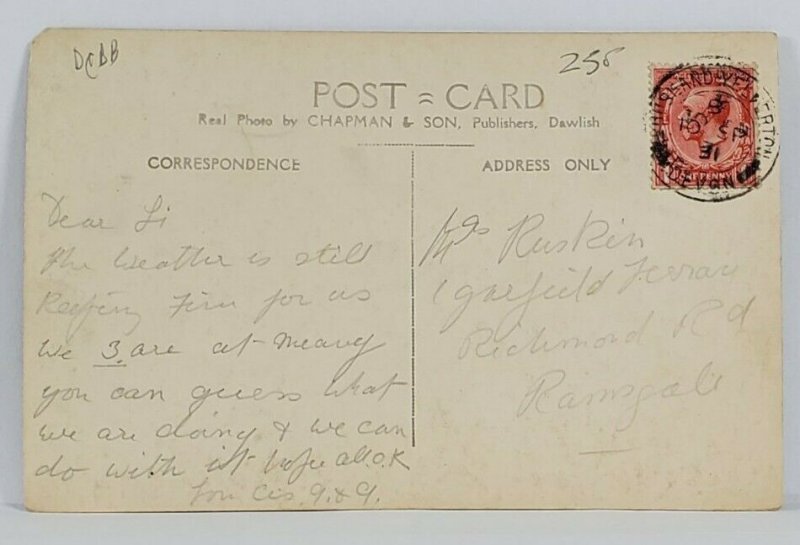 DCBB
258
POST = CARD
Real Photo by CHAPMAN & SON, Publishers, Dawlish
CORRESPONDENCE
ADDRESS ONLY
YELVERTON
DEVON
PENNY
Dear Li
the weather is still
Keeping Fine for us
We 3 are at Meavy
you can guess what
we are doing & we can
do with it hope all O.K
Cis. G. & G.
Mrs Ruskin
1 Garfield Terrace
Richmond Rd
Ramsgate